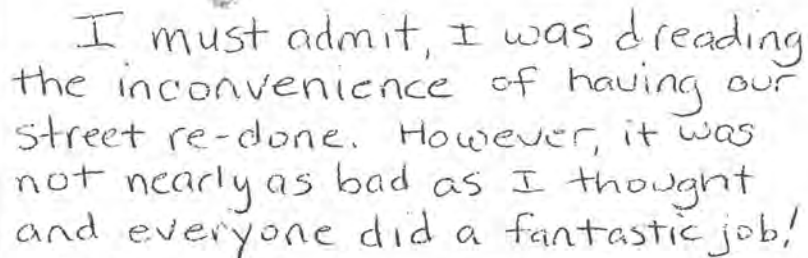 I must admit, I was dreading
the inconvenience of having our
street re-done. However, it was
not nearly as bad as I thought
and everyone did a fantastic job!